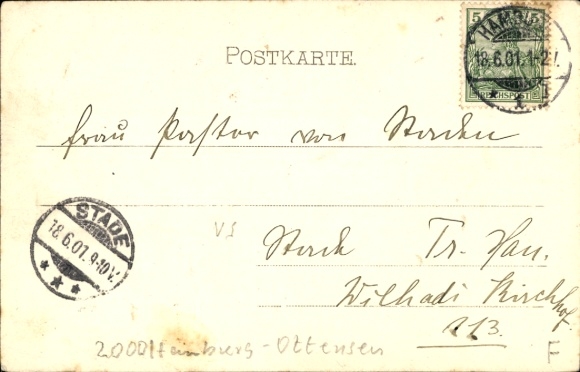 5 5
HAMBURG
18.6.01.1-2V.
* 1 f
REICHSPOST
POSTKARTE.
Frau Pastor von Staden
STADE
18.6.01.9-10V.
* * *
VS
Stade Pr. Han.
Wilhadi Kirchhof
113.
2000 Hamburg-Ottensen
E